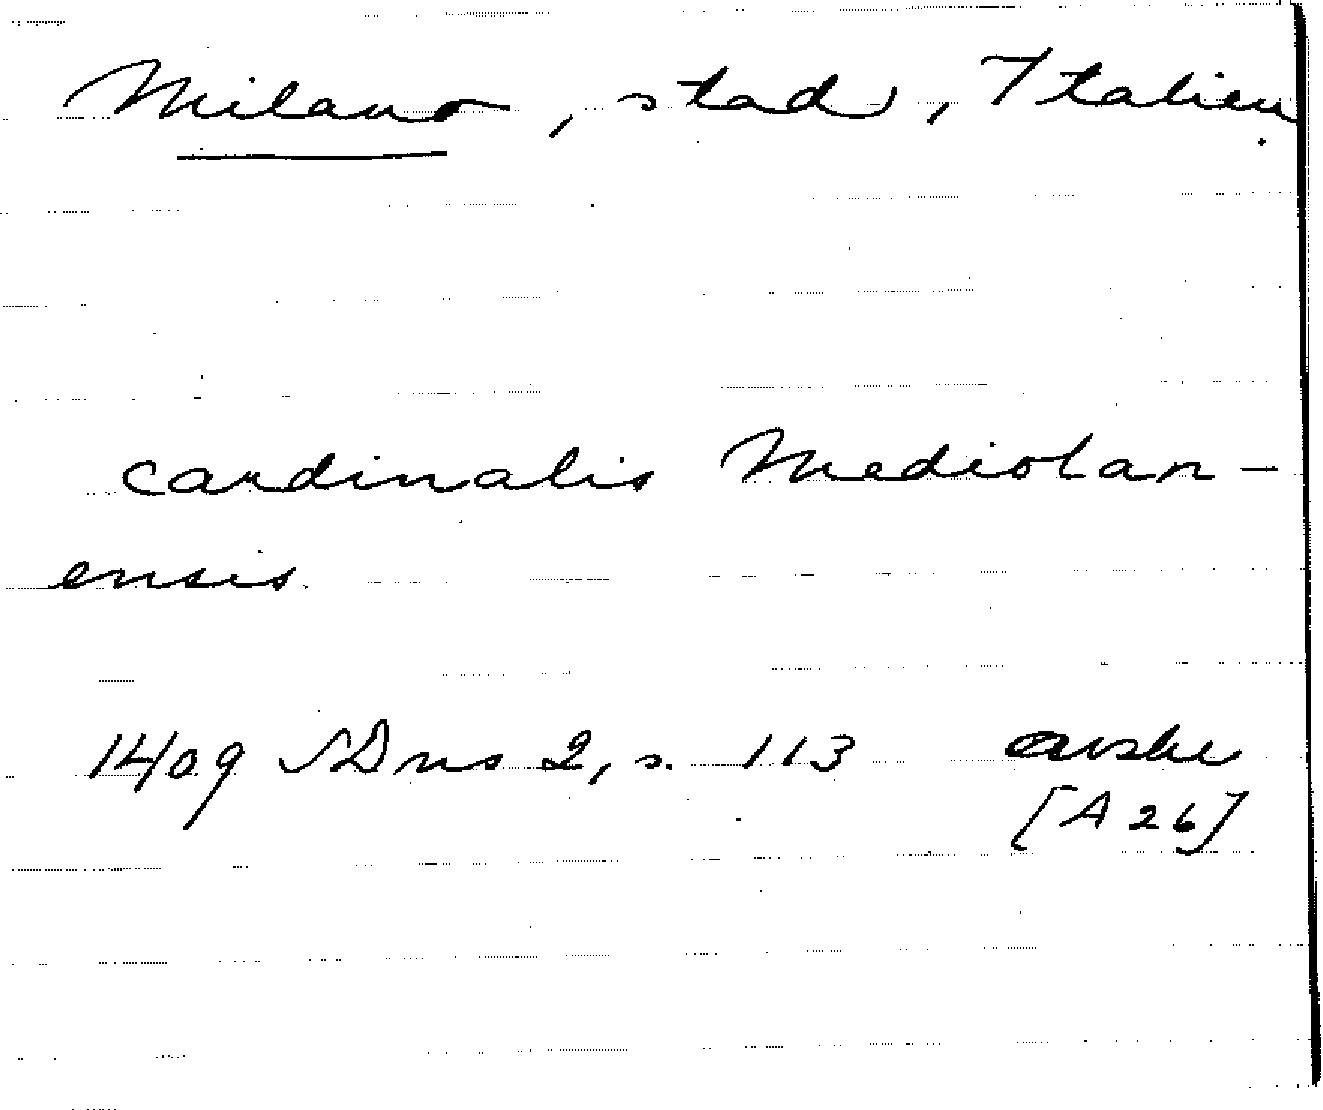 Milano, stad, Italien.
cardinalis Mediolan-
ensis.
1409 SDns 2, s. 113 avskr
[A 26]